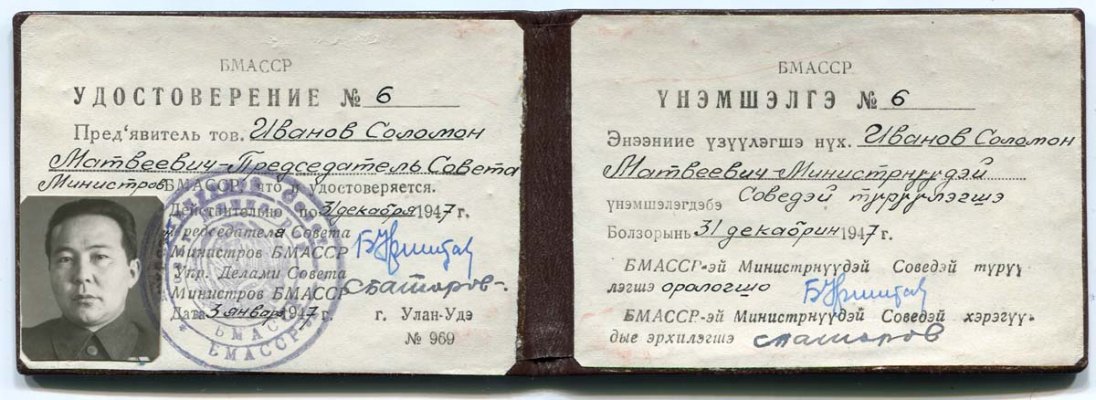 БМАССР
УДОСТОВЕРЕНИЕ № 6
Пред'явитель тов. Иванов Соломон
Матвеевич-Председатель Совета
Министров БМАССР что и удостоверяется.
Действительно по 31 декабря 1947 г.
Председателя Совета
Министров БМАССР
Упр. Делами Совета
Министров БМАССР
Дата 3 января 1947 г. г. Улан-Удэ
№ 969
БМАССР
БМАССР
ҮНЭМШЭЛГЭ № 6
Энээниие үзүүлэгшэ нүх. Иванов Соломон
Матвеевич-Министрнүүдэй
Соведэй түрүүлэгшэ
үнэмшэлэгдэбэ
Болзорынь 31 декабрин 1947 г.
БМАССР-эй Министрнүүдэй Соведэй түрүү
лэгшэ орологшо
БМАССР-эй Министрнүүдэй Соведэй хэрэгүү-
дые эрхилэгшэ